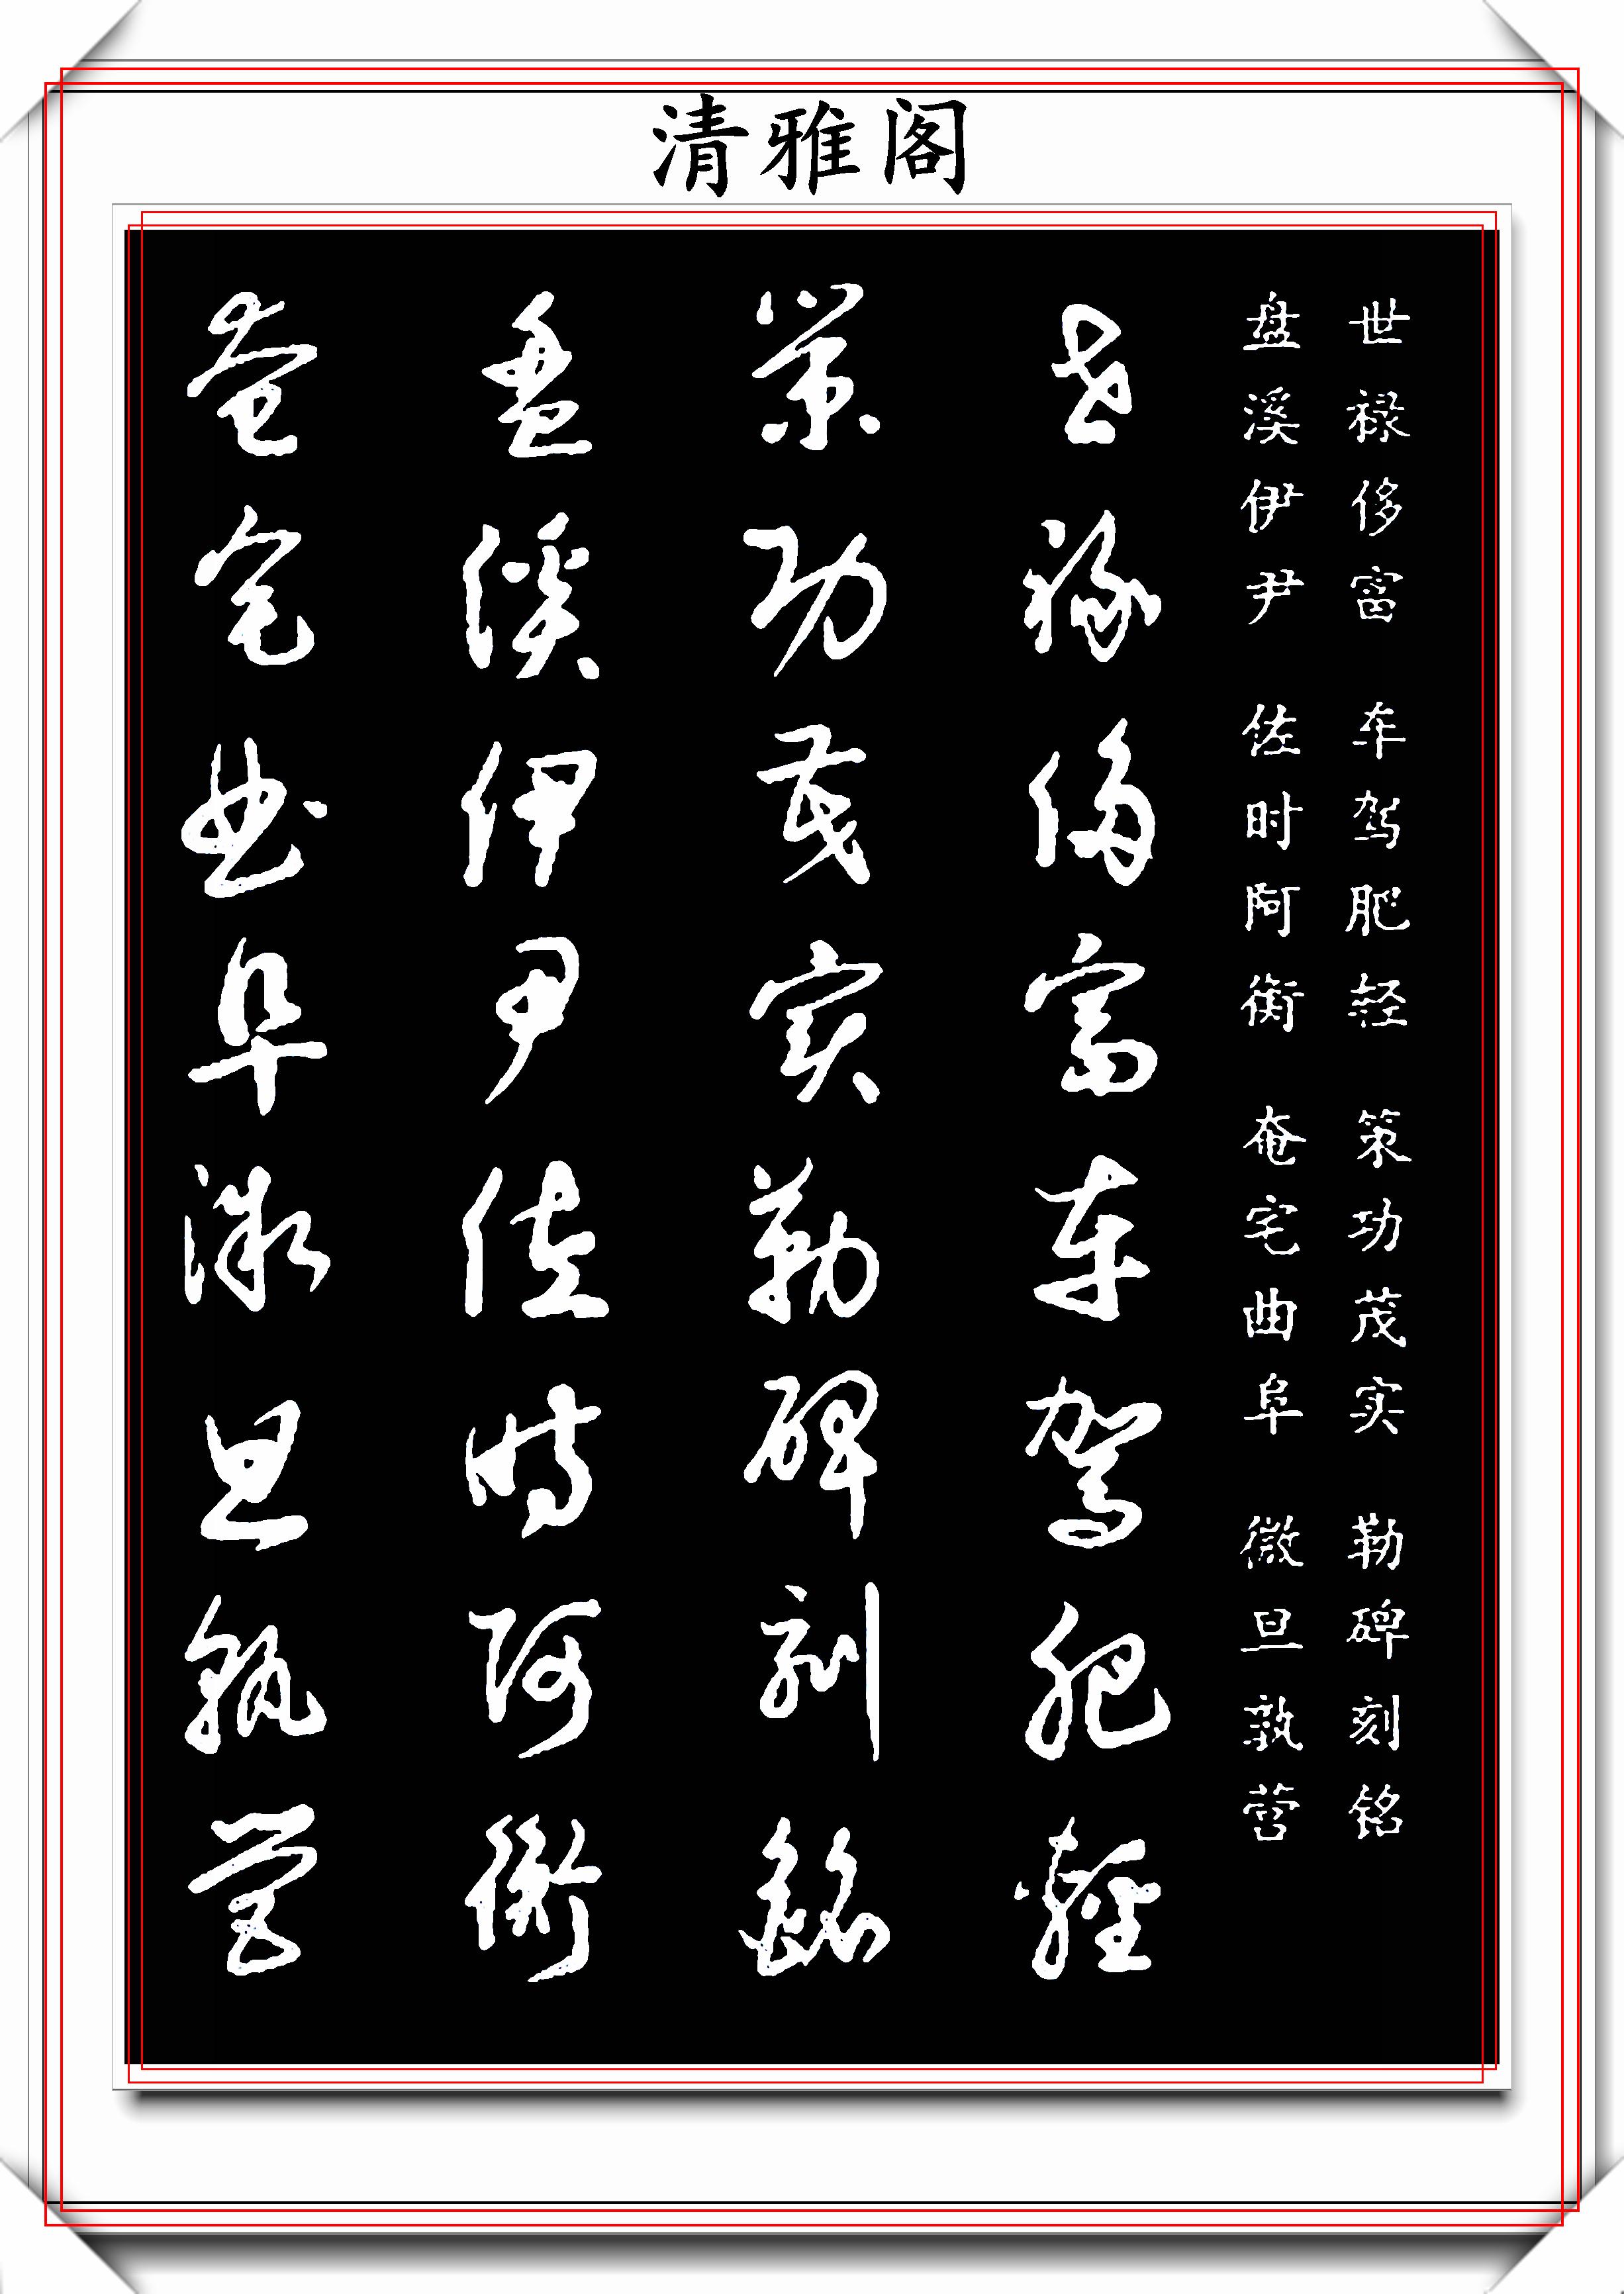 清雅阁
世禄侈富 车驾肥轻 策功茂实 勒碑刻铭
盘溪伊尹 佐时阿衡 奄宅曲阜 微旦孰营
世禄侈富车驾肥轻
策功茂实勒碑刻铭
盘溪伊尹佐时阿衡
奄宅曲阜微旦孰营